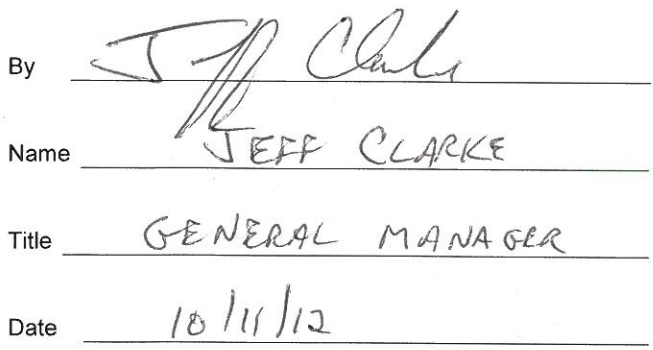 By Jeff Clarke
Name JEFF CLARKE
Title GENERAL MANAGER
Date 10/11/12